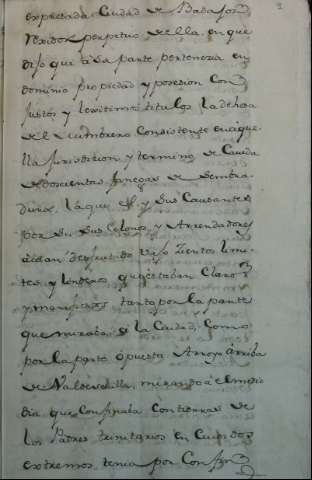 expresada Ciudad de Badajoz,
Rexidor perpetuo de ella, en que
dijo que a su parte pertenecia en
dominio propiedad y posesion con
justos y lexitimos titulos la dehesa
de el consistente en aque-
lla jurisdiccion, y termino de Cavida
de doscientas fanegas de sembra-
dura, la que el y sus Causantes
por si, sus Colonos, y Arrendadores
havian desfrutado vajo ciertos limi-
tes, y linderos, que estaban claros
y manifiestos tanto por la parte
que miraba a la Ciudad, Como
por la parte opuesta Arroyo arriba
de mirando a el medio
dia, que Confinaba con tierras de
los Padres trinitarios en cuios dos
extremos, tenia por Confin